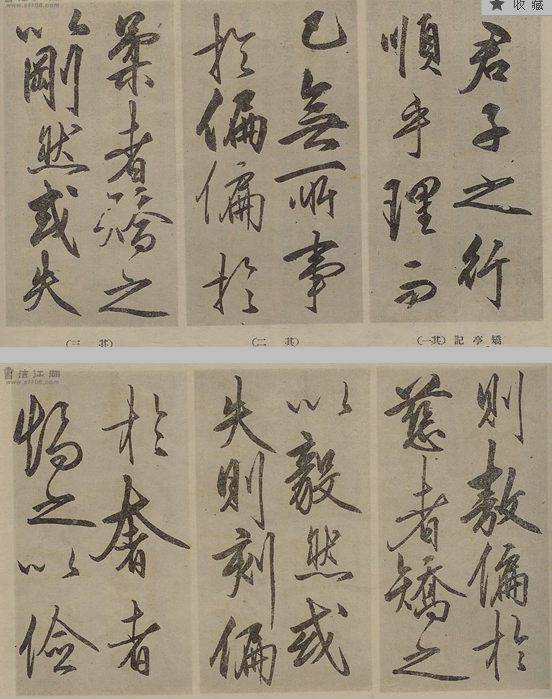 ★ 收藏
www.sf108.com
君子之行
順乎理而
已無所事
於偏偏於
柔者矯之
以剛然或失
矯亭記(其一)
(其二)
(其三)
書法江湖
www.sf108.com
則敖偏於
慈者矯之
以毅然或
失則刻偏
於奢者
矯之以儉